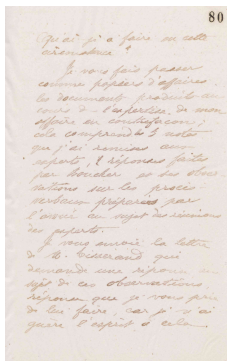 80
Qu'ai je à faire en cette
circonstance ?
Je vous fais passer
comme papiers d'affaires
les documents produits au
cours de l'expertise de mon
affaire en contrefaçon ;
cela comprend 3 notes
que j'ai remises aux
experts, 2 réponses faites
par Boucher et ses obser
vations sur les procès
verbaux préparés par
l'avoué au sujet des réunions
des experts.
Je vous envoie la lettre
de M. Tisserand qui
demande une réponse au
sujet de ces observations,
réponse que je vous prie
de lui faire, car je n'ai
guère l'esprit à cela.